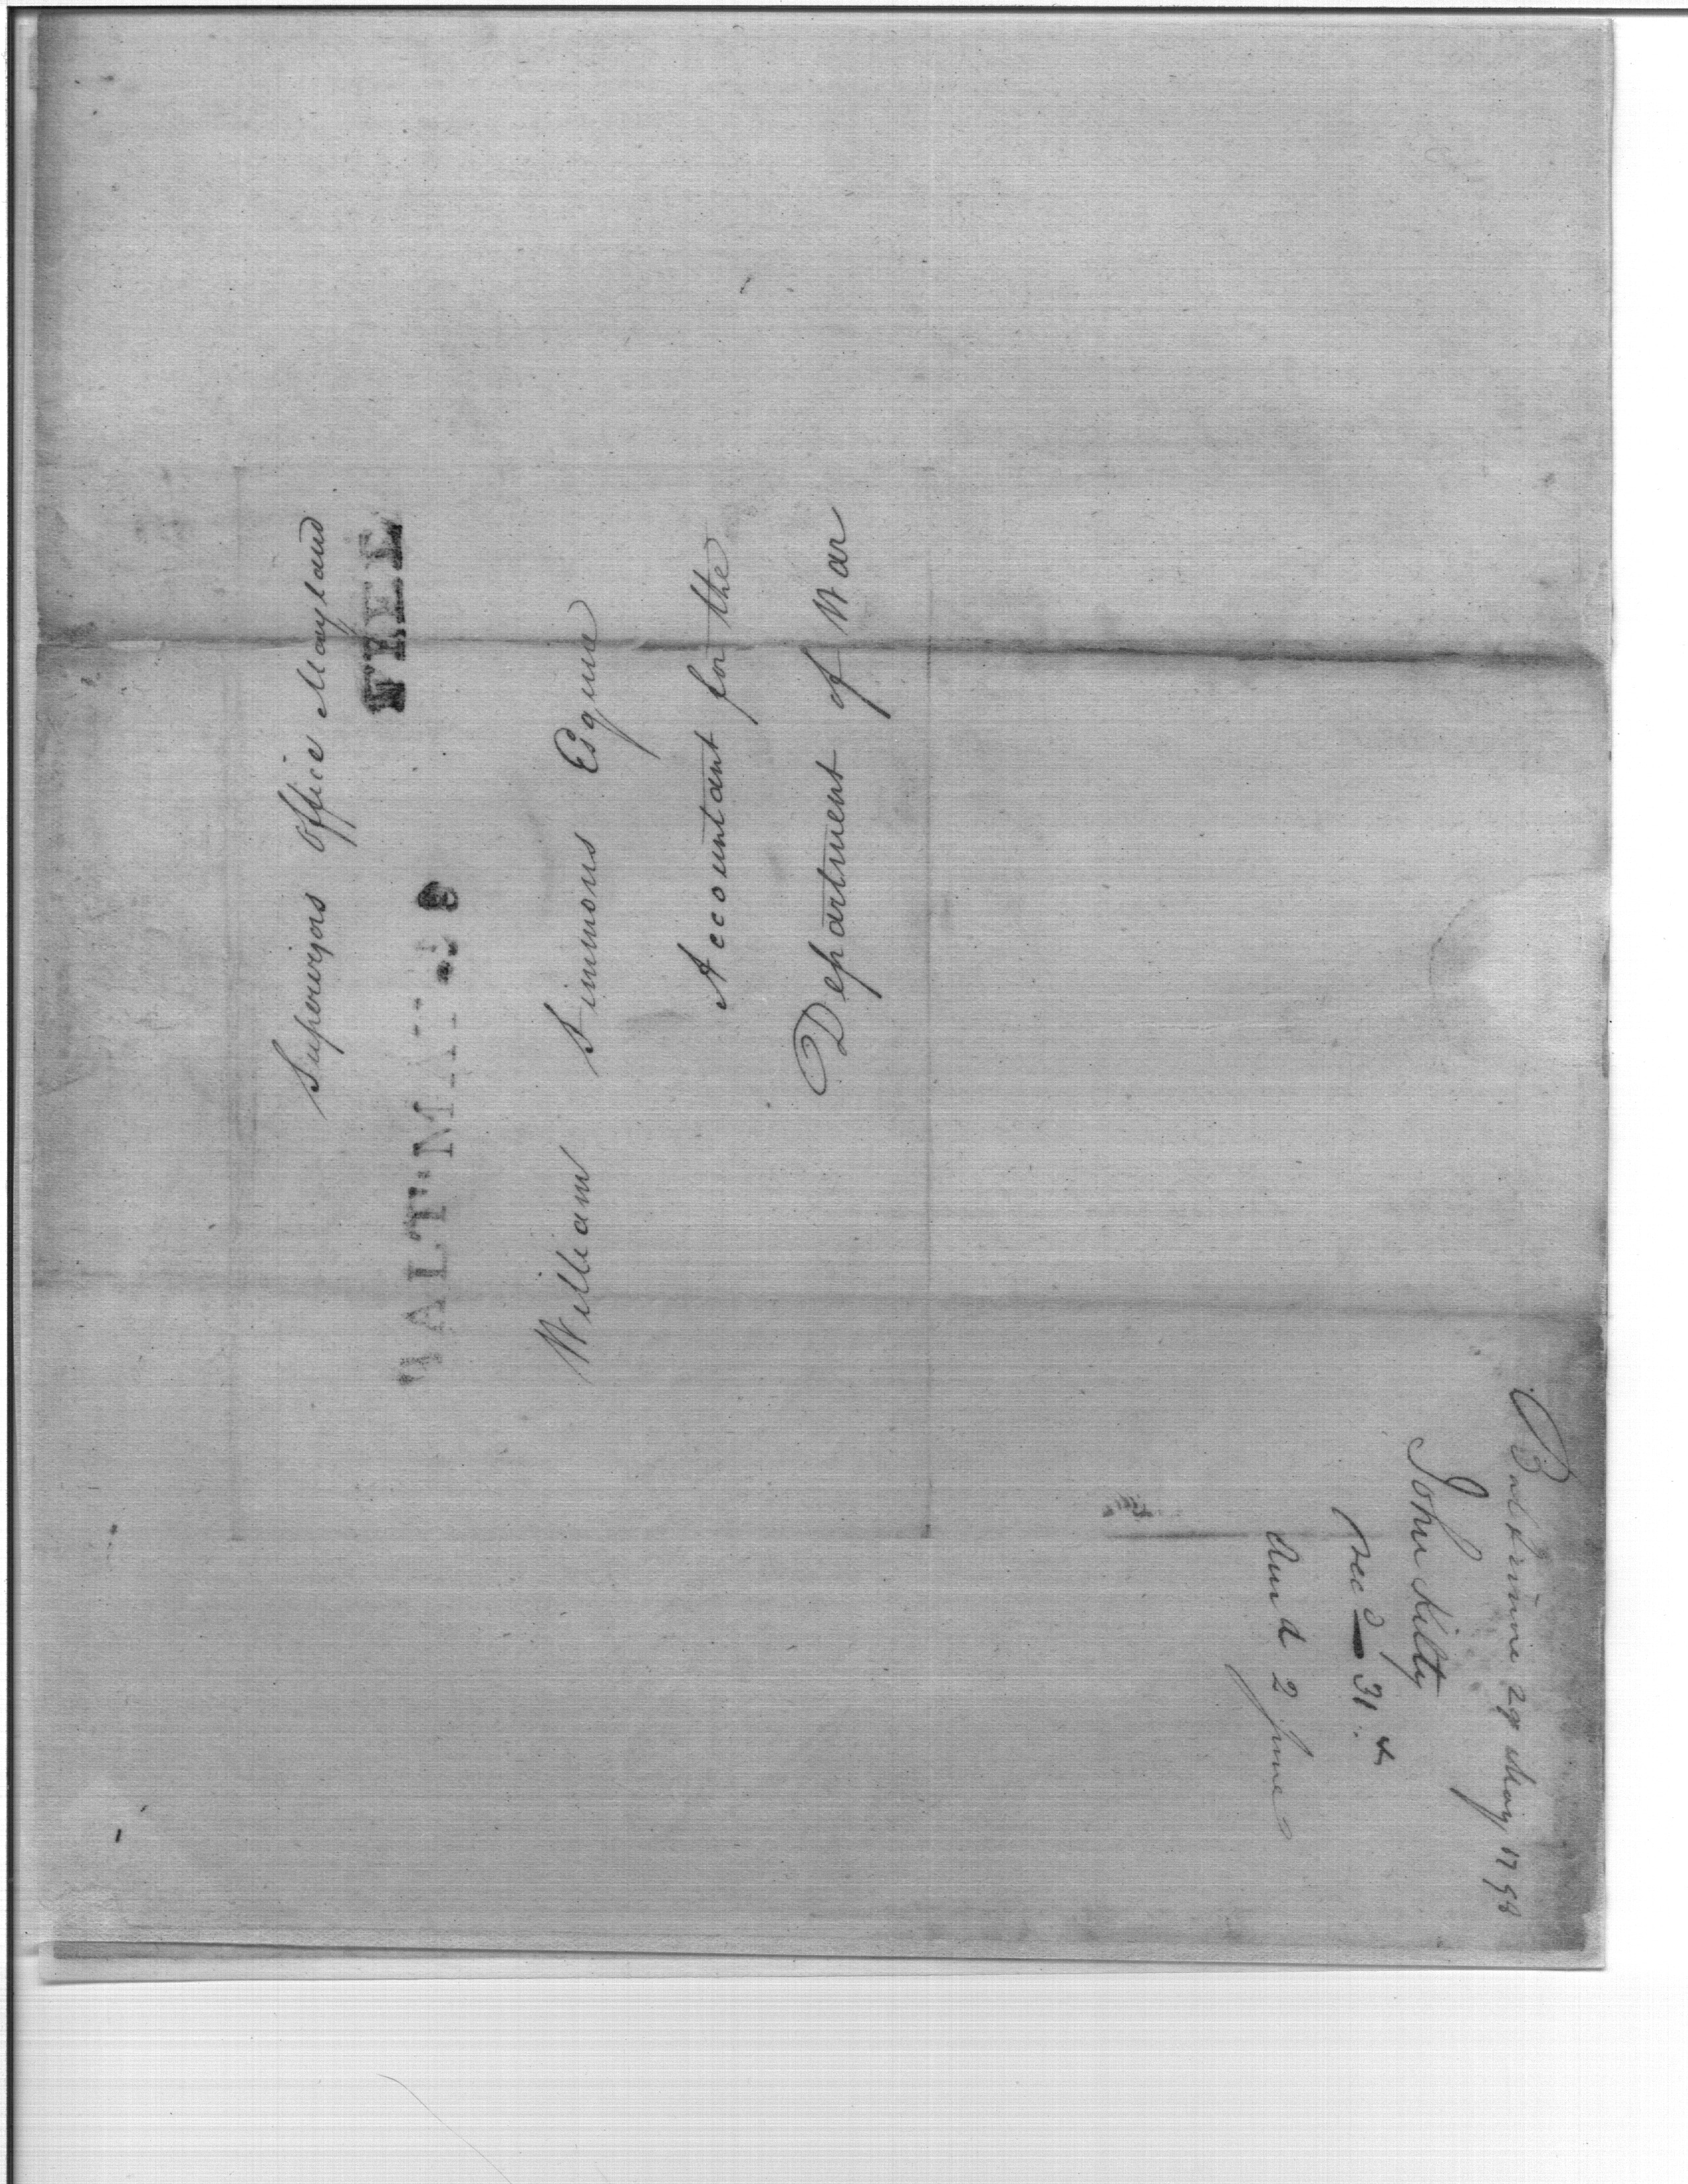 Supervisors Office Maryland
FREE
BALT. MAY
William Simmons Esquire
Accountant for the
Department of War
Baltimore 29 May 1798
John Kilty
recd 31st
and 2 June